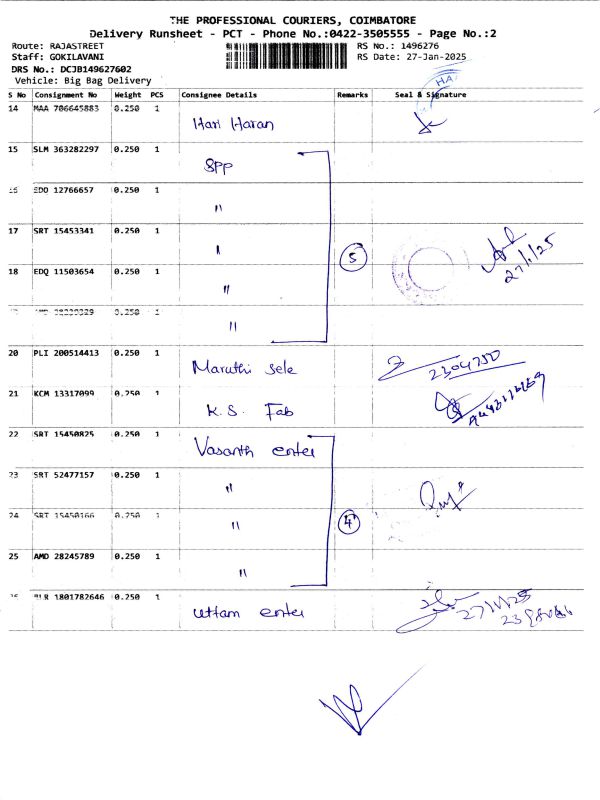 THE PROFESSIONAL COURIERS, COIMBATORE
Delivery Runsheet - PCT - Phone No.:0422-3505555 - Page No.:2
Route: RAJASTREET RS No.: 1496276
Staff: GOKILAVANI RS Date: 27-Jan-2025
DRS No.: DCJB149627602
Vehicle: Big Bag Delivery
S No Consignment No Weight PCS Consignee Details Remarks Seal & Signature
HA
14 MAA 706645883 0.250 1 Hari Haran
15 SLM 363282297 0.250 1 SPP
16 EDO 12766657 0.250 1 "
17 SRT 15453341 0.250 1 " 5 27/1/25
18 EDQ 11503654 0.250 1 "
0.250 1 "
20 PLI 200514413 0.250 1 Maruthi Sele 2304750
21 KCM 13317099 0.250 1 K.S. Fab
22 SRT 15450825 0.250 1 Vasanth enter
23 SRT 52477157 0.250 1 "
24 SRT 15450166 0.250 1 " 4
25 AMD 28245789 0.250 1 "
26 BLR 1801782646 0.250 1 Uttam enter 27/1/25